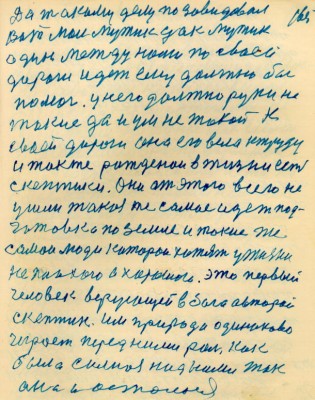 Да такому делу позавидовал
вот мои мужик как мужик
один между нами по своей
дороги идет ему должно бы
помог. у него должно руки не
такие да и ум не такой К
своей дороги она его вела к труду
и также рожденое в жизни есть
скептики. Они от этого всего не
ушли такое же самое идет под-
готовка по земле и такие же
самое люди которое хотят у жизни
не плохого а хорошого. это первый
человек верующей в бога а второй
скептик. им природа одинаково
играет перед ними рол. как
была силноя над ними так
она и осталося